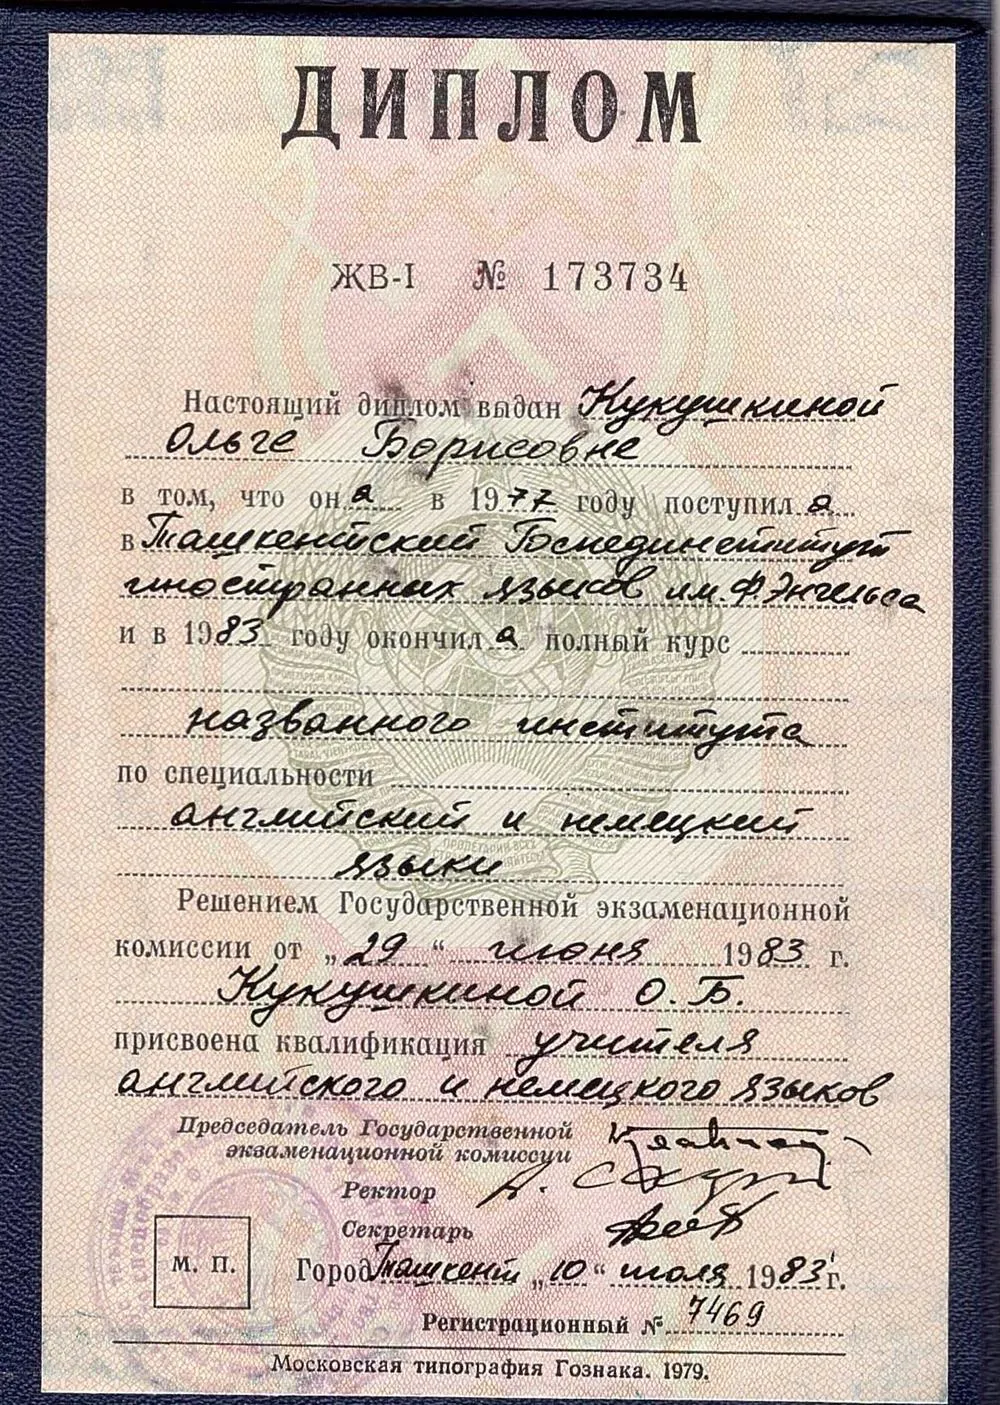 ДИПЛОМ
ЖВ-I № 173734
Настоящий диплом выдан Кукушкиной
Ольге Борисовне
в том, что она в 1977 году поступила
в Ташкентский Госпединститут
иностранных языков им. Ф. Энгельса
и в 1983 году окончила полный курс
названного института
по специальности
английский и немецкий
языки
Решением Государственной экзаменационной
комиссии от „29“ июня 1983 г.
Кукушкиной О. Б.
присвоена квалификация учителя
английского и немецкого языков
Председатель Государственной
экзаменационной комиссии
Ректор
Секретарь
М. П.
Город Ташкент „10“ июля 1983 г.
Регистрационный № 7469
Московская типография Гознака. 1979.